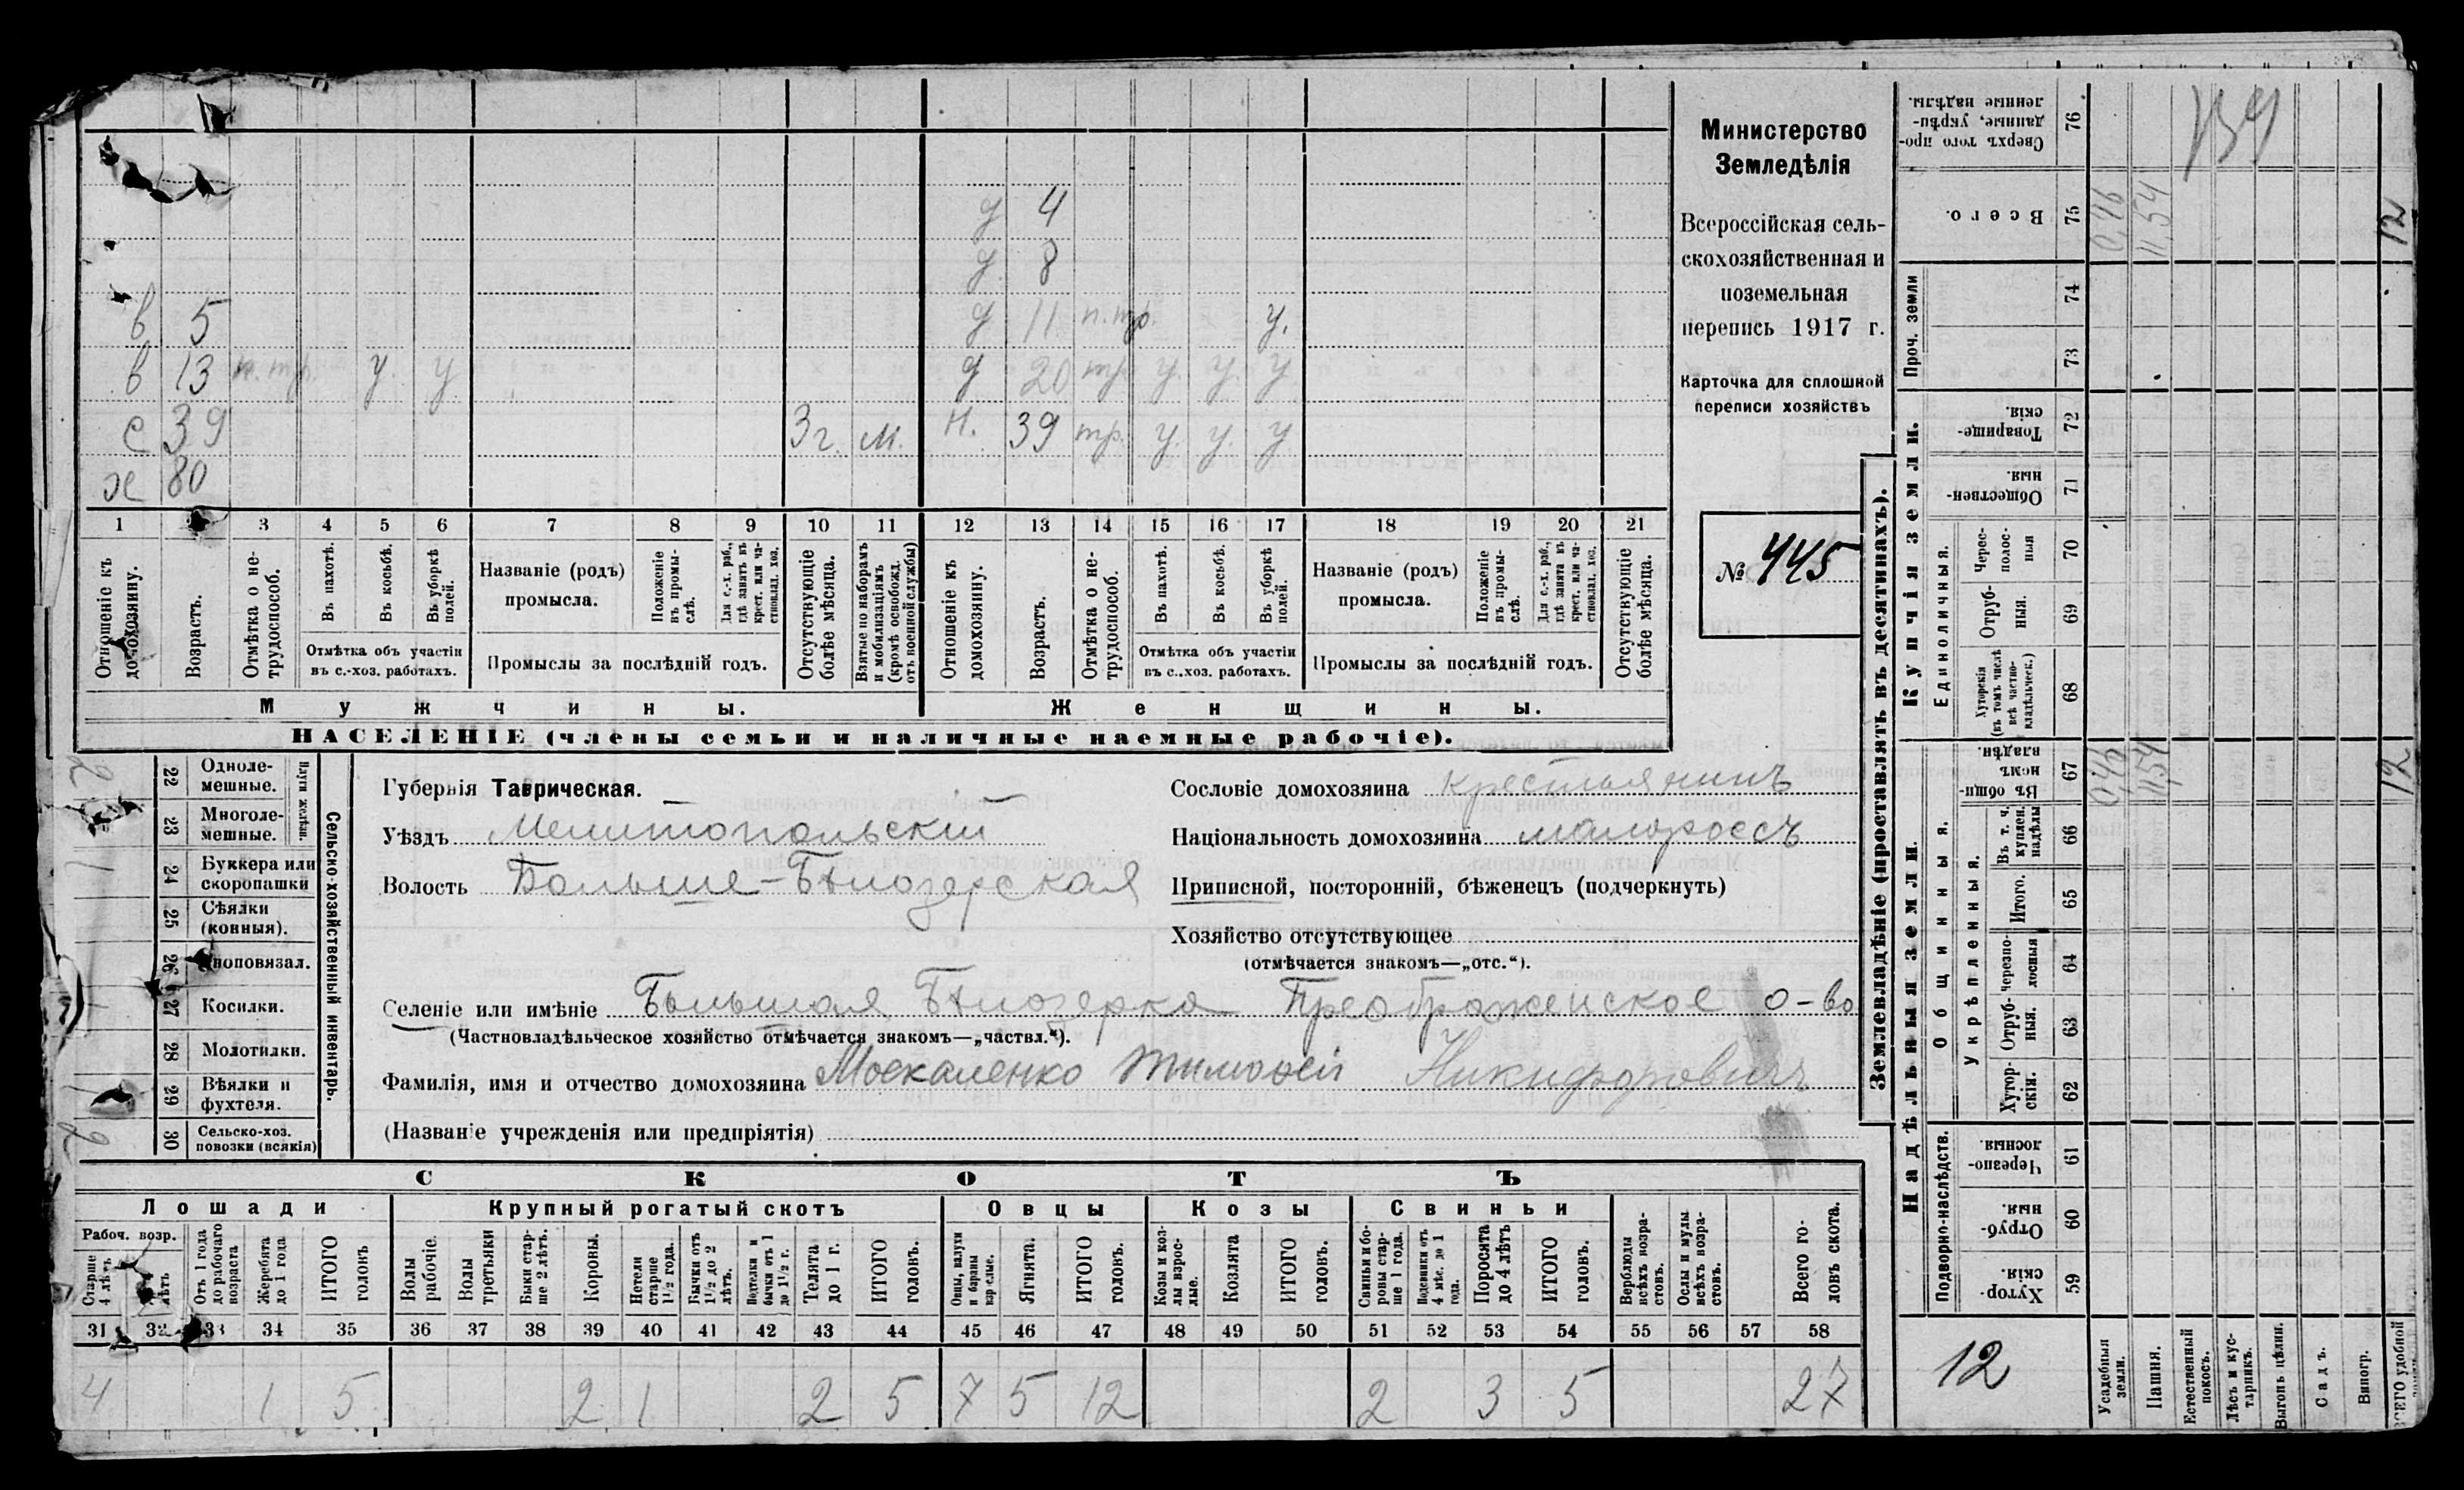 Министерство
Земледѣлія
Всероссійская сель-
скохозяйственная и
поземельная
перепись 1917 г.
Карточка для сплошной
переписи хозяйствъ
№ 445
д 4
д 8
в 5 д 11 п.тр. у.
в 13 п.тр. у. у д 20 тр у. у. у
с 39 3 г. м. н. 39 тр. у. у. у
х 80
1 3 4 5 6 7 8 9 10 11 12 13 14 15 16 17 18 19 20 21
Отношеніе къ домохозяину.
Возрастъ.
Отмѣтка о не-трудоспособ.
Въ пахотѣ.
Въ косьбѣ.
Въ уборкѣ полей.
Отмѣтка объ участіи
въ с.-хоз. работахъ.
Названіе (родъ)
промысла.
Положеніе въ промы-слѣ.
Для с.-х. раб., гдѣ занятъ въ крест. или ча-стновлад. хоз.
Промыслы за послѣдній годъ.
Отсутствующіе болѣе мѣсяца.
Взятые по наборамъ и мобилизаціямъ (кромѣ освобожд. отъ военной службы)
Отношеніе къ домохозяину.
Возрастъ.
Отмѣтка о не-трудоспособ.
Въ пахотѣ.
Въ косьбѣ.
Въ уборкѣ полей.
Отмѣтка объ участіи
въ с.-хоз. работахъ.
Названіе (родъ)
промысла.
Положеніе въ промы-слѣ.
Для с.-х. раб., гдѣ занята въ крест. или ча-стновлад. хоз.
Промыслы за послѣдній годъ.
Отсутствующіе болѣе мѣсяца.
Мужчины. Женщины.
НАСЕЛЕНІЕ (члены семьи и наличные наемные рабочіе).
Сельско-хозяйственный инвентарь.
Плуги желѣзн.
22 Одноле-мешные.
23 Многоле-мешные.
24 Буккера или скоропашки
25 Сѣялки (конныя).
26 Сноповязал.
27 Косилки.
28 Молотилки.
29 Вѣялки и фухтеля.
30 Сельско-хоз. повозки (всякія)
Губернія Таврическая.
Уѣздъ Мелитопольскій
Волость Больше-Бѣлозерская
Сословіе домохозяина крестьянинъ
Національность домохозяина малороссъ
Приписной, посторонній, бѣженецъ (подчеркнуть)
Хозяйство отсутствующее
(отмѣчается знакомъ—„отс.“).
Селеніе или имѣніе Большая Бѣлозерка Преображенское о-во
(Частновладѣльческое хозяйство отмѣчается знакомъ—„частвл.“).
Фамилія, имя и отчество домохозяина Москаленко Тимофей Никифоровичъ
(Названіе учрежденія или предпріятія)
СКОТЪ
Лошади Крупный рогатый скотъ Овцы Козы Свиньи
Рабоч. возр.
Старше 4 лѣтъ
лѣтъ
Отъ 1 года до рабочаго возраста
Жеребята до 1 года
ИТОГО головъ
Волы рабочіе.
Волы третьяки
Быки стар-ше 2 лѣтъ.
Коровы.
Нетели старше 1½ года.
Бычки отъ 1½ до 2 лѣтъ.
Подтелки и бычки отъ 1 до 1½ г.
Телята до 1 г.
ИТОГО головъ.
Овцы, валухи и бараны взрослые.
Ягнята.
ИТОГО головъ.
Козы и коз-лы взрос-лые.
Козлята
ИТОГО головъ.
Свиньи и бо-ровы стар-ше 1 года.
Подсвинки отъ 4 мѣс. до 1 года.
Поросята до 4 лѣтъ
ИТОГО головъ.
Верблюды всѣхъ возра-стовъ.
Ослы и мулы всѣхъ возра-стовъ.
Всего го-ловъ скота.
31 32 33 34 35 36 37 38 39 40 41 42 43 44 45 46 47 48 49 50 51 52 53 54 55 56 57 58
4 1 5 2 1 2 5 7 5 12 2 3 5 27
Землевладѣніе (проставлять въ десятинахъ).
Надѣльныя земли. Купчія земли. Проч. земли
Подворно-наслѣдств. Общинныя. Укрѣпленныя. Единоличныя.
76 Сверхъ того про-данные, укрѣп-ленные надѣлы.
75 Всего. 0,46 11,54 12
74
73
72 Товарище-скія.
71 Обществен-ныя.
70 Черес-полос-ныя
69 Отруб-ныя.
68 Хуторскія (въ томъ числѣ всѣ частно-владѣльческ.)
67 Въ общи-номъ владѣн. 0,46 11,54 12
66 Въ т. ч. куплен. надѣлы
65 Итого.
64 черезпо-лосныя
63 Отруб-ныя.
62 Хутор-скія.
61 Черезпо-лосныя
60 Отруб-ныя.
59 Хутор-скія.
12
Усадебныя земли.
Пашня.
Естественный покосъ.
Лѣсъ и кус-тарникъ.
Выгонъ цѣлин.
Садъ.
Виногр.
ВСЕГО удобной